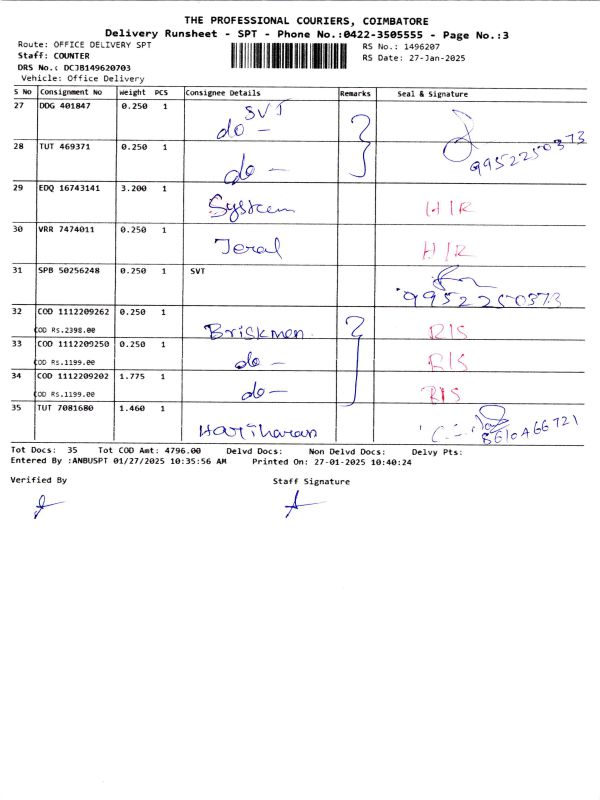 THE PROFESSIONAL COURIERS, COIMBATORE
Delivery Runsheet - SPT - Phone No.:0422-3505555 - Page No.:3
Route: OFFICE DELIVERY SPT
RS No.: 1496207
Staff: COUNTER
RS Date: 27-Jan-2025
DRS No.: DCJB149620703
Vehicle: Office Delivery
S No Consignment No Weight PCS Consignee Details Remarks Seal & Signature
27 DDG 401847 0.250 1 SVT
do -
28 TUT 469371 0.250 1 9952250373
do -
29 EDQ 16743141 3.200 1
System H/R
30 VRR 7474011 0.250 1
H/R
31 SPB 50256248 0.250 1 SVT
9952250373
32 COD 1112209262 0.250 1
COD Rs.2398.00 Briskmen R/S
33 COD 1112209250 0.250 1
COD Rs.1199.00 do - R/S
34 COD 1112209202 1.775 1
COD Rs.1199.00 do - R/S
35 TUT 7081680 1.460 1
Hariharan
Tot Docs: 35 Tot COD Amt: 4796.00 Delvd Docs: Non Delvd Docs: Delvy Pts:
Entered By :ANBUSPT 01/27/2025 10:35:56 AM Printed On: 27-01-2025 10:40:24
Verified By Staff Signature